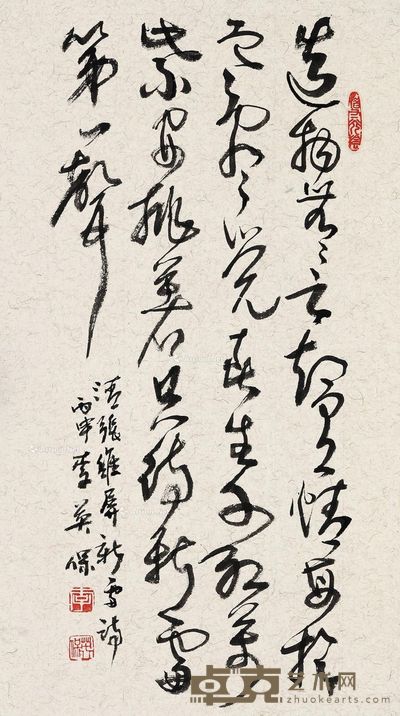 造物無言却有情每於
寒盡覺春生千紅萬
紫安排著只待新雷
第一聲
清張維屏新雷詩
丙申李英保
卓克艺术网
zhuokearts.com